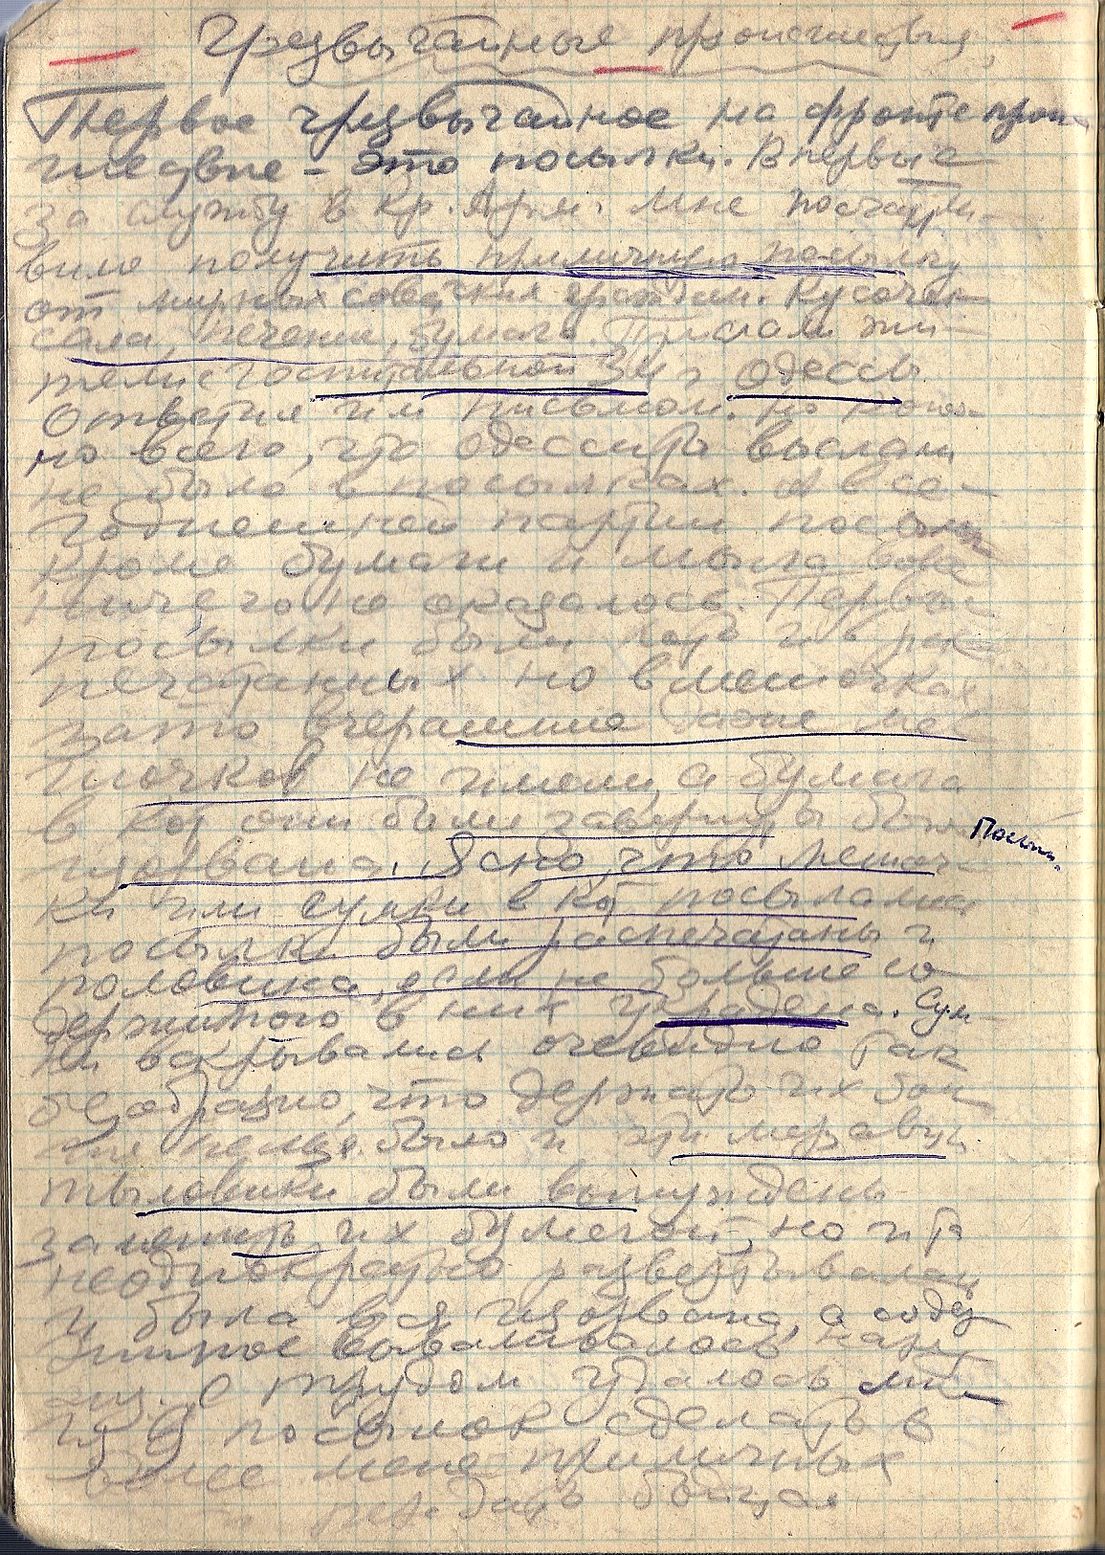 Чрезвычайные происшествия
Первое чрезвычайное на фронте прои-
шедвие – это посылки. Впервые
за службу в Кр. Арм. мне посчастли-
вило получить приличную посылку
от мирных советских граждан. Кусочек
сала, печенье, бумага. Прислали жи-
тели с Госпитальной 3 из Одессы
Ответил им письмом. но
но всего, что одесситы выслали
не было в посылках. А в се-
годнешней партии посылок
кроме бумаги и мыла
ничего не оказалось. Первые
посылки были хотя и в рас-
печатанных но в мешочках
зато вчерашние даже ме-
шочков не имели, а бумага
в кот они были завернуты была
изорвана. Ясно, что мешоч-
Посылк.
ки или сумки в кот посылались
посылки были распечатаны и
половина, если не больше со-
держимого в них украдена. Сум-
ки вскрывались очевидно так
безобразно, что держать их
нельзя было и эти мерзавцы
тыловики были вынуждены
заменить их бумагой, но и та
неоднократно развертывалась
и была вся изорвана, а
вываливалось нару-
жу. С трудом удалось мне
из 9 посылок сделать
более мене приличных
передать бойцам